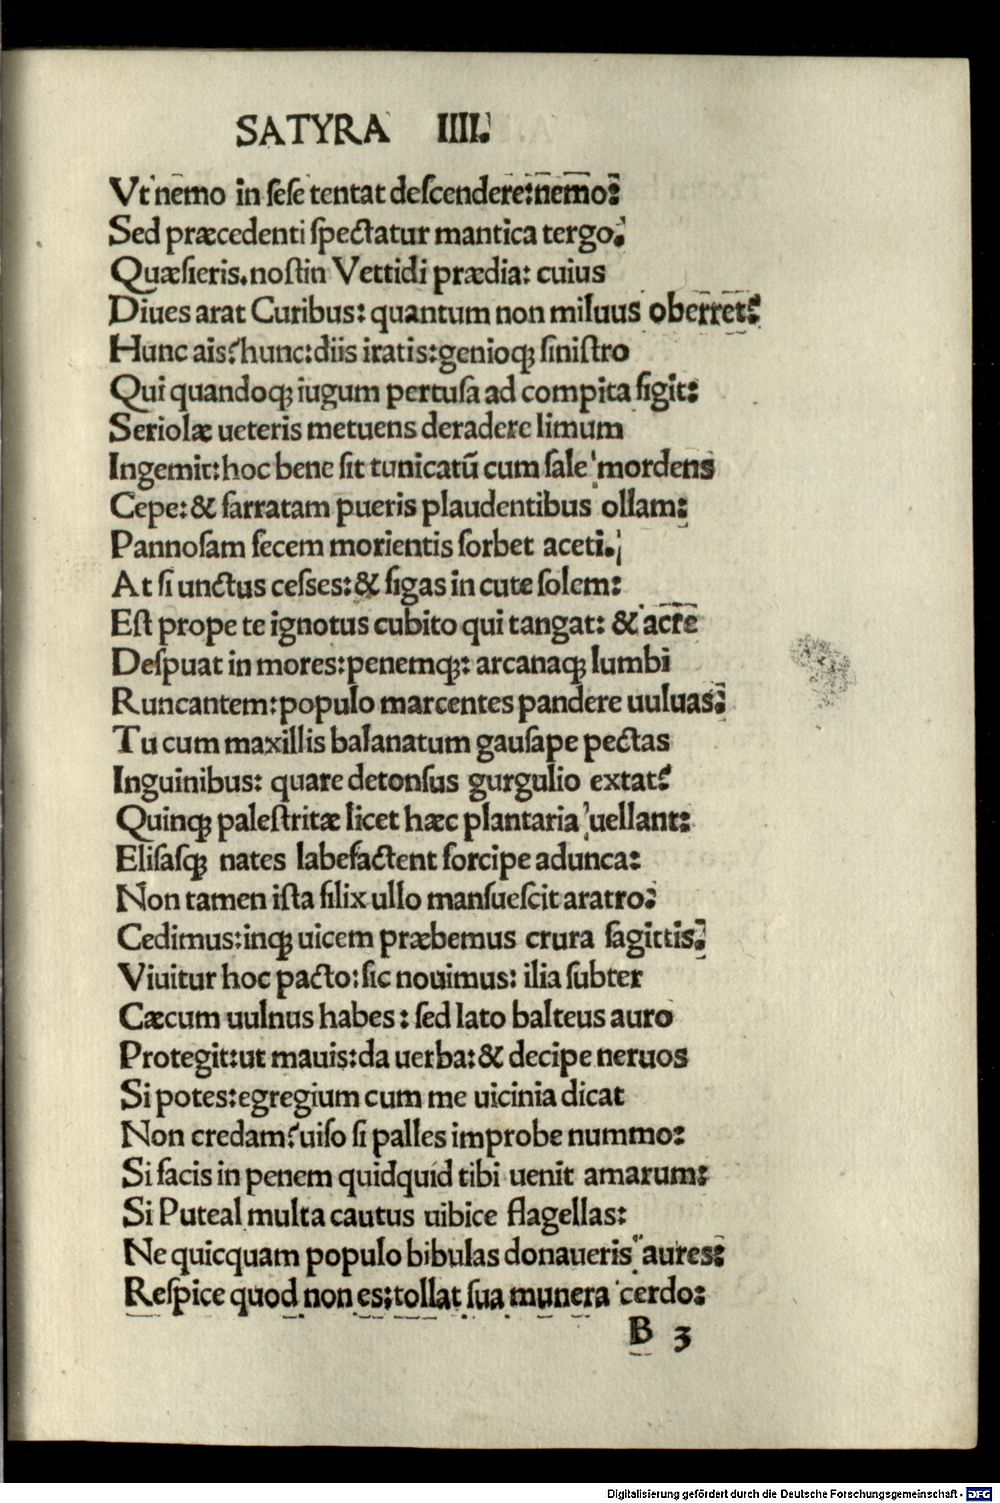 SATYRA IIII.
Vt nemo in ſeſe tentat deſcendere:nemo:
Sed præcedenti ſpectatur mantica tergo.
Quæſieris.noſtin Vettidi prædia: cuius
Diues arat Curibus: quantum non miluus oberret?
Hunc ais?hunc:diis iratis:genioq; ſiniſtro
Qui quandoq; iugum pertuſa ad compita figit:
Seriolæ ueteris metuens deradere limum
Ingemit:hoc bene ſit tunicatū cum ſale mordens
Cepe:& farratam pueris plaudentibus ollam:
Pannoſam fecem morientis ſorbet aceti.
At ſi unctus ceſſes:& figas in cute ſolem:
Eſt prope te ignotus cubito qui tangat: & acre
Deſpuat in mores:penemq;: arcanaq; lumbi
Runcantem:populo marcentes pandere uuluas:
Tu cum maxillis balanatum gauſape pectas
Inguinibus: quare detonſus gurgulio extat?
Quinq; paleſtritæ licet hæc plantaria uellant:
Eliſaſq; nates labefactent forcipe adunca:
Non tamen iſta filix ullo manſueſcit aratro:
Cedimus:inq; uicem præbemus crura ſagittis.
Viuitur hoc pacto:ſic nouimus: ilia ſubter
Cæcum uulnus habes: ſed lato balteus auro
Protegit:ut mauis:da uerba:& decipe neruos
Si potes:egregium cum me uicinia dicat
Non credam?uiſo ſi palles improbe nummo:
Si facis in penem quidquid tibi uenit amarum:
Si Puteal multa cautus uibice flagellas:
Ne quicquam populo bibulas donaueris aures:
Reſpice quod non es:tollat ſua munera cerdo:
B 3
Digitalisierung gefördert durch die Deutsche Forschungsgemeinschaft - DFG